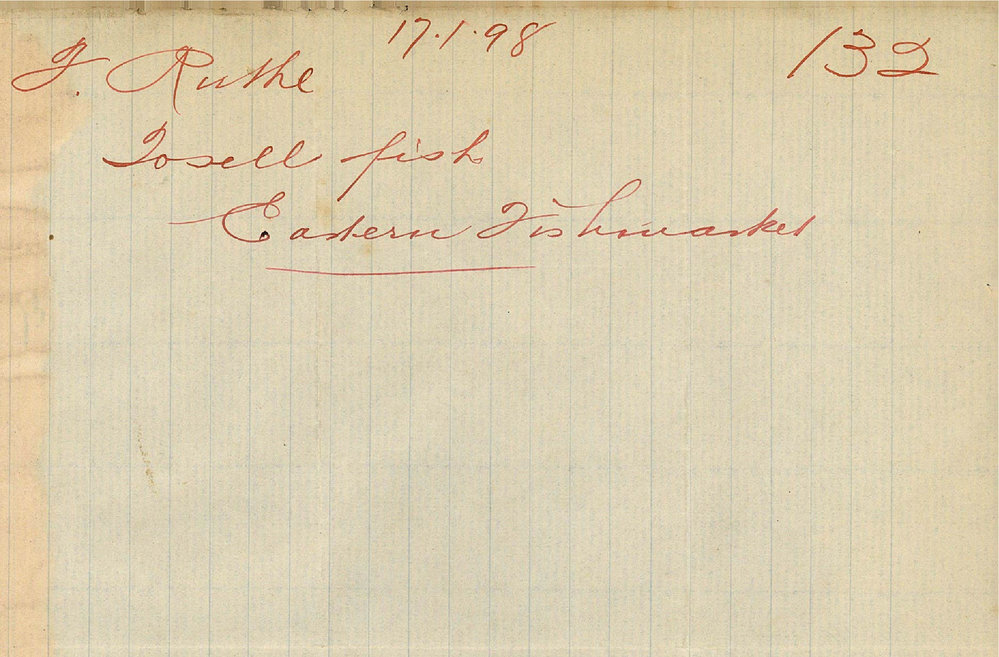 17.1.98
132
F. Ruthe
To sell fish
Eastern Fishmarket